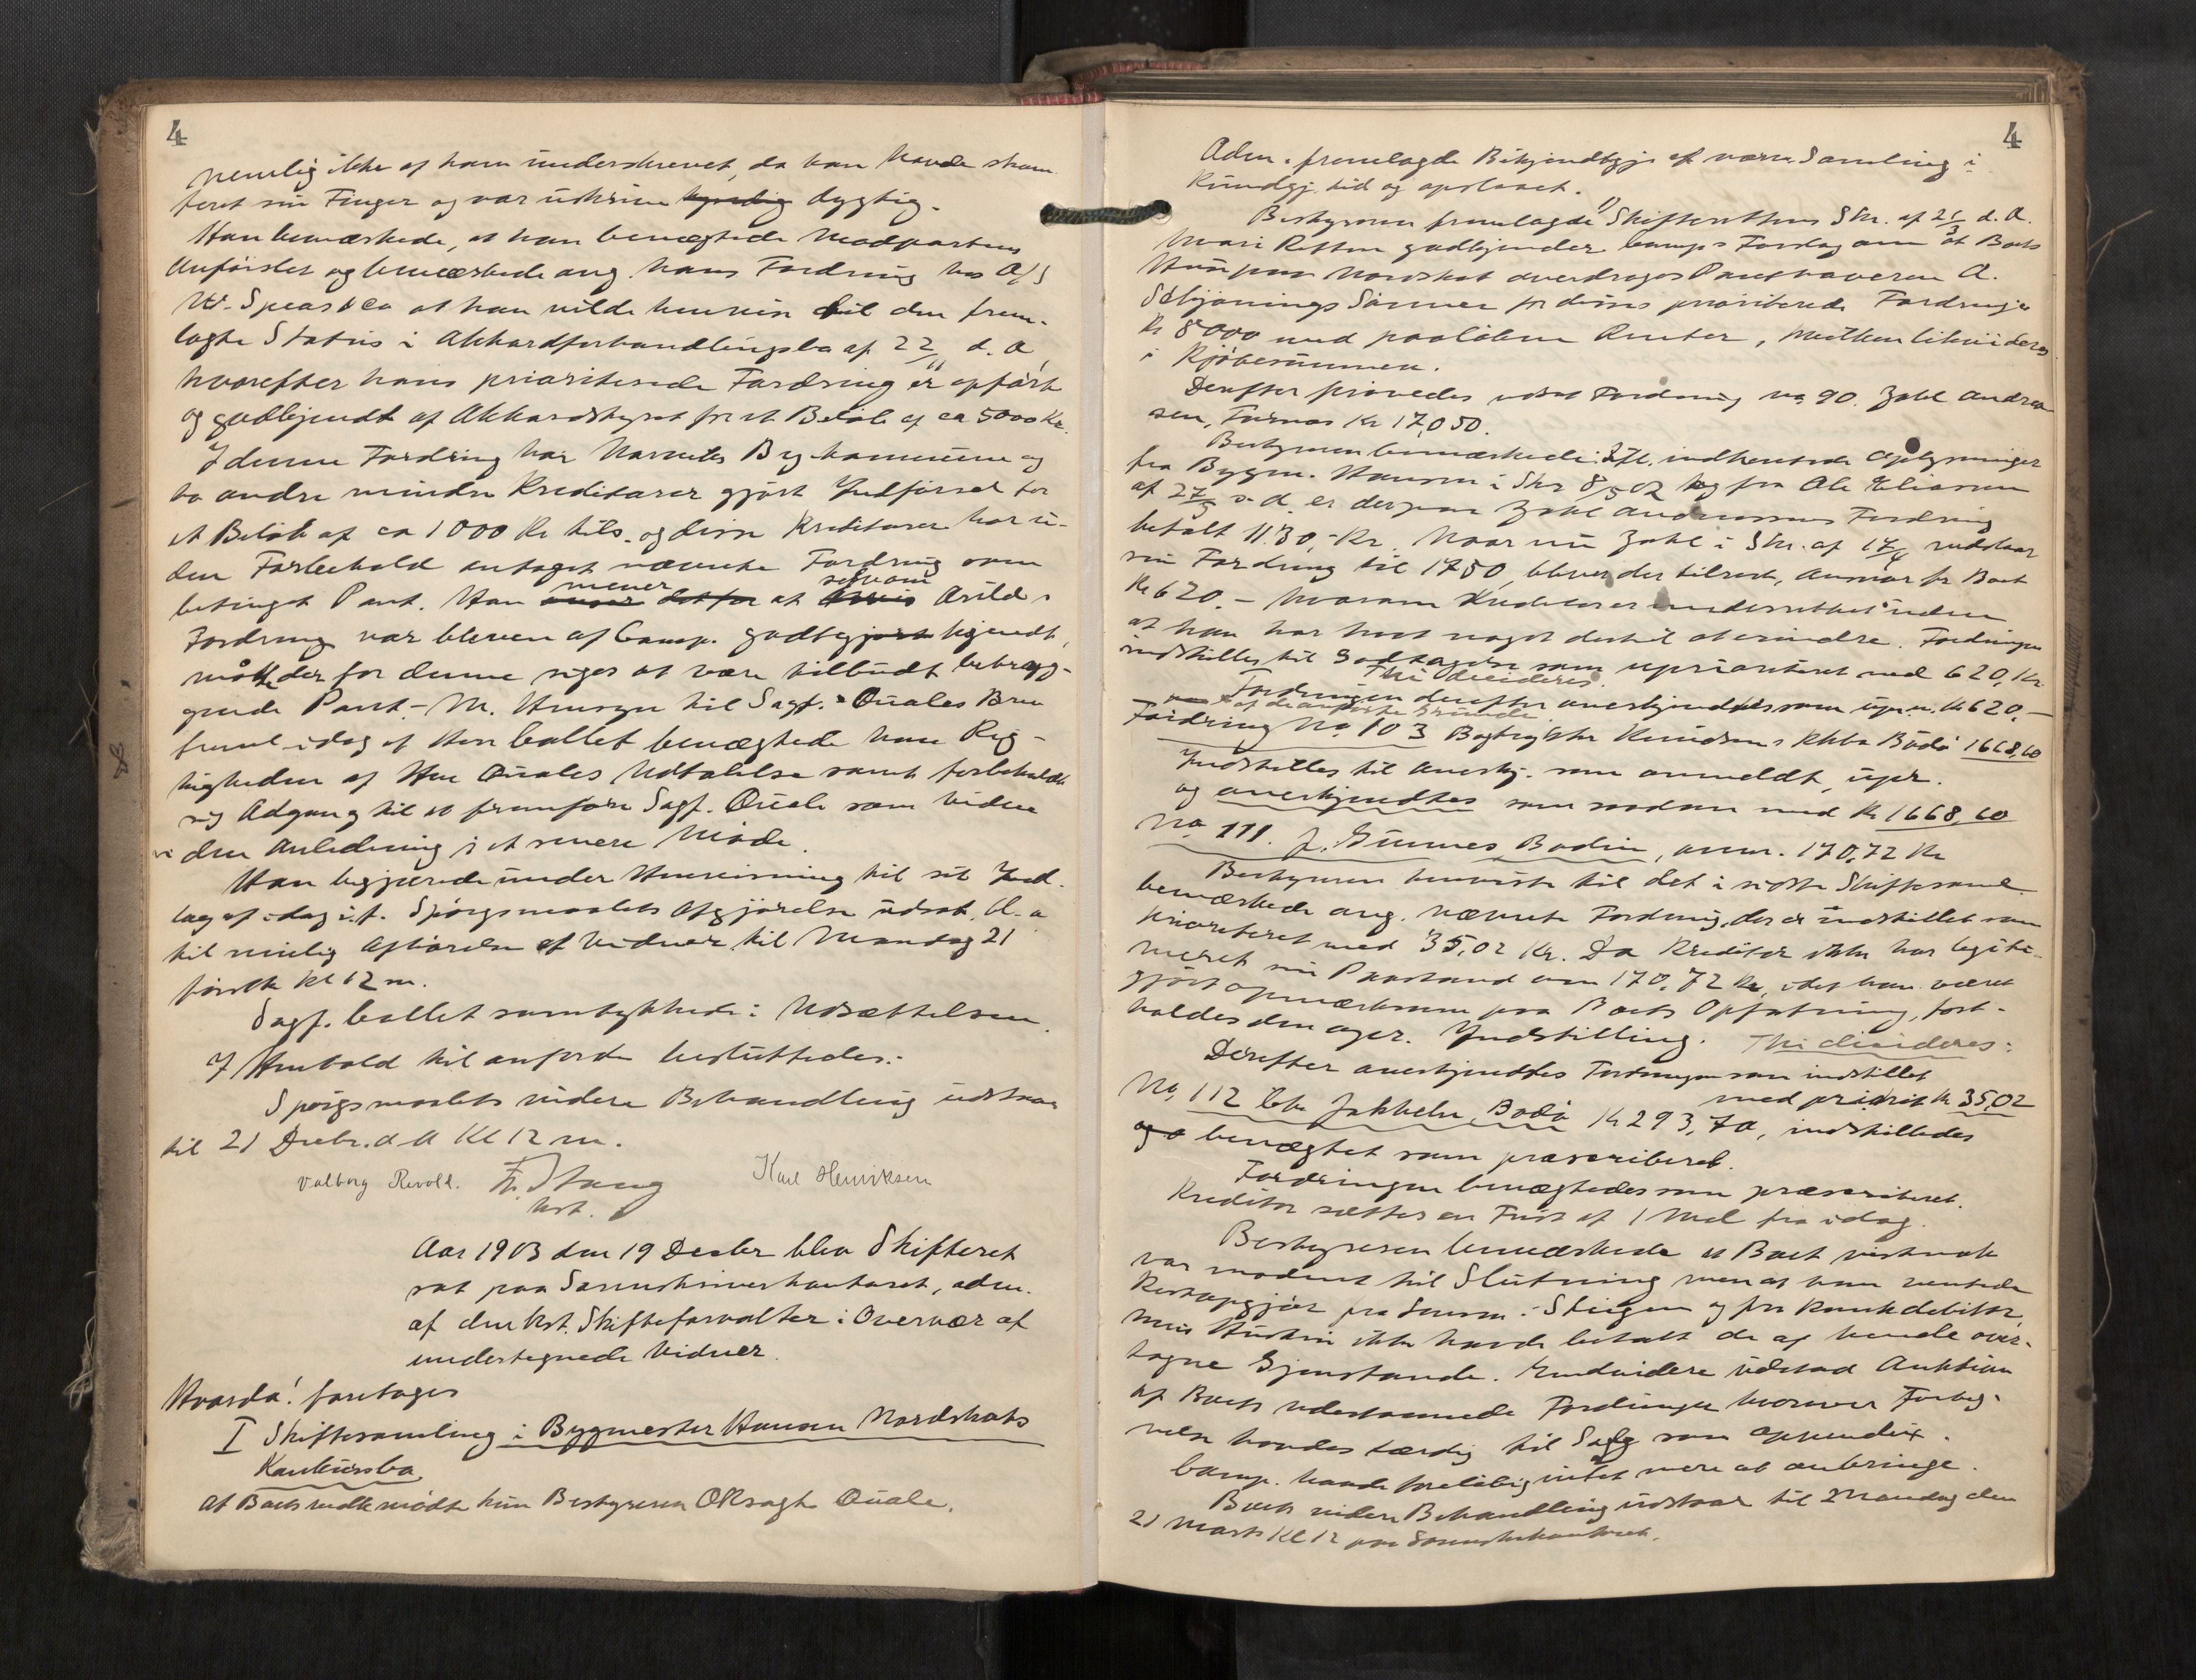 4
nemlig ikke af ham underskrevet, da han havde skam-
feret sin Finger og var uskrive kyndig dygtig.
Han bemærkede, at han benægtede Modpartens
Anførsler og bemærkede ang. hans Fordring hos A/S
W. Spears & Co at han vilde henvise til den frem-
lagte Status i Akkordforhandlingsbo af 22/11 d. A,
hvorefter hans prioriterede Fordring er opført
og godkjendt af Akkordstyret for et Beløb af ca 5000 Kr.
I denne Fordring har Bykommune og
to andre mindre Kreditorer gjort Indførsel for
et Beløb af ca 1000 Kr tils. og disse Kreditorer har u-
den Forbehold antaget nævnte Fordring som
betinget Pant. Han mener at selvom Arilds
Fordring var bleven af Comp. godkjendt,
måtte der for denne siges at være tilbudt betryg-
gende Pant.- M. Hensyn til Sagf. Quales Brev
freml. idag af Herr Collet benægtede han Rig-
tigheden af Hrr Quales Udtalelse samt forbeholdt
sig Adgang til at fremføre Sagf. Quale som Vidne
i den Anledning i et senere Møde.
Han begjærede under Henvisning til sit Ind-
læg af idag i.f. Spørgsmaalets Afgjørelse udsat bl. a
til mulig Afhørelse af Vidner til Mandag 21
førstk Kl 12 m.
Sagf. Collet samtykkede i Udsættelsen.
I Henhold til anførte besluttedes:
Spørgsmaalets videre Behandling udstaar
til 21 Decbr. d A Kl 12 m.
Valborg Revold. Fr. Stang Karl Henriksen
kst.
Aar 1903 den 19 Decbr blev Skifteret
sat paa Sorenskriverkontoret, adm.
af den kst. Skifteforvalter i Overvær af
undertegnede Vidner.
Hvorda! foretoges
I Skiftesamling i Bygmester Hansen Nordskots
Konkursbo
Af Boets mødte kun Bestyreren OKsagf. Quale.
4
Adm. fremlagde Bekjendtgj. af nærv. Samling i
Kundgj. tid og opslaaet.
Bestyreren fremlagde Skifterettens Skr. af 21/3 d. A.
hvori Retten godkjender Comp's Forslag om at Boets
Hus paa Nordskot overdroges Panthaveren A.
Sønner for dennes prioriterede Fordring
Kr 8000 med paaløbne Renter, hvilken likvideres
i Kjøbesummen.
Derefter prøvedes udsat Fordring no 90. Zakl Andrea-
sen, Furnes Kr 17,050.
Bestyreren bemærkede: Ifl. indhentede Oplysninger
fra Bygm. Hansen i Skr 8/5 02 og fra Ole Eliassen
af 27/5 s. d. er der paa Zakl Andreassens Fordring
betalt 1130,- Kr. Naar nu Zakl i Skr. af 17/4 nedslaar
sin Fordring til 1750, bliver der tilrest, Ansvar for Boet
Kr 620.- hvorom Kreditor er underrettet uden
at han har havt noget dertil at erindre. Fordringen
indstilles til Godtagelse som uprioriteret med 620, Kr
Thi decideres.
Fordringen derefter anerkjendtes som upr. m. Kr 620.-
af de anførte Grunde
Fordring No 103 Bogtrykker Knudsens Kkbo Bodø 1668,60
Indstilles til Anerkj. som anmeldt, upr.
og anerkjendtes som saadan med Kr 1668,60
No 111. J. Gunnes, Bodin, anm. 170,72 Kr
Bestyreren henviste til det i sidste Skiftesaml.
bemærkede ang. nævnte Fordring, der er indstillet som
prioriteret med 35,02 Kr. Da Kreditor ikke har legiti-
meret sin Paastand om 170,72 Kr, idet han været
gjort opmærksom paa Boets Opfatning, fast-
holdes den oger. Indstilling. Thi decideres:
Derefter anerkjendtes Fordringen som indstillet
med priorit Kr 35,02
No 112 Chr Jakhelln Bodø Kr 293,70, indstilledes
benægtet som præscriberet.
Fordringen benægtedes som præscriberet.
Kreditor sættes en Frist af 1 Md fra idag.
Bestyreren bemærkede at Boet vistnok
var modent til Slutning men at han ventede
Restopgjør fra Sorensk. i Steigen og fra Konk debitor,
hvis Hustru ikke havde betalt de af hende over-
tagne Gjenstande. Endvidere udstod Auktion
af Boets udestaaende Fordringer hvorover Forteg-
nelse havdes færdig til Salg som Appendix.
Comp. havde foreløbig intet mere at anbringe.
Boets videre Behandling udstaar til Mandag den
21 Marts Kl 12 paa Sorenskrkontoret.